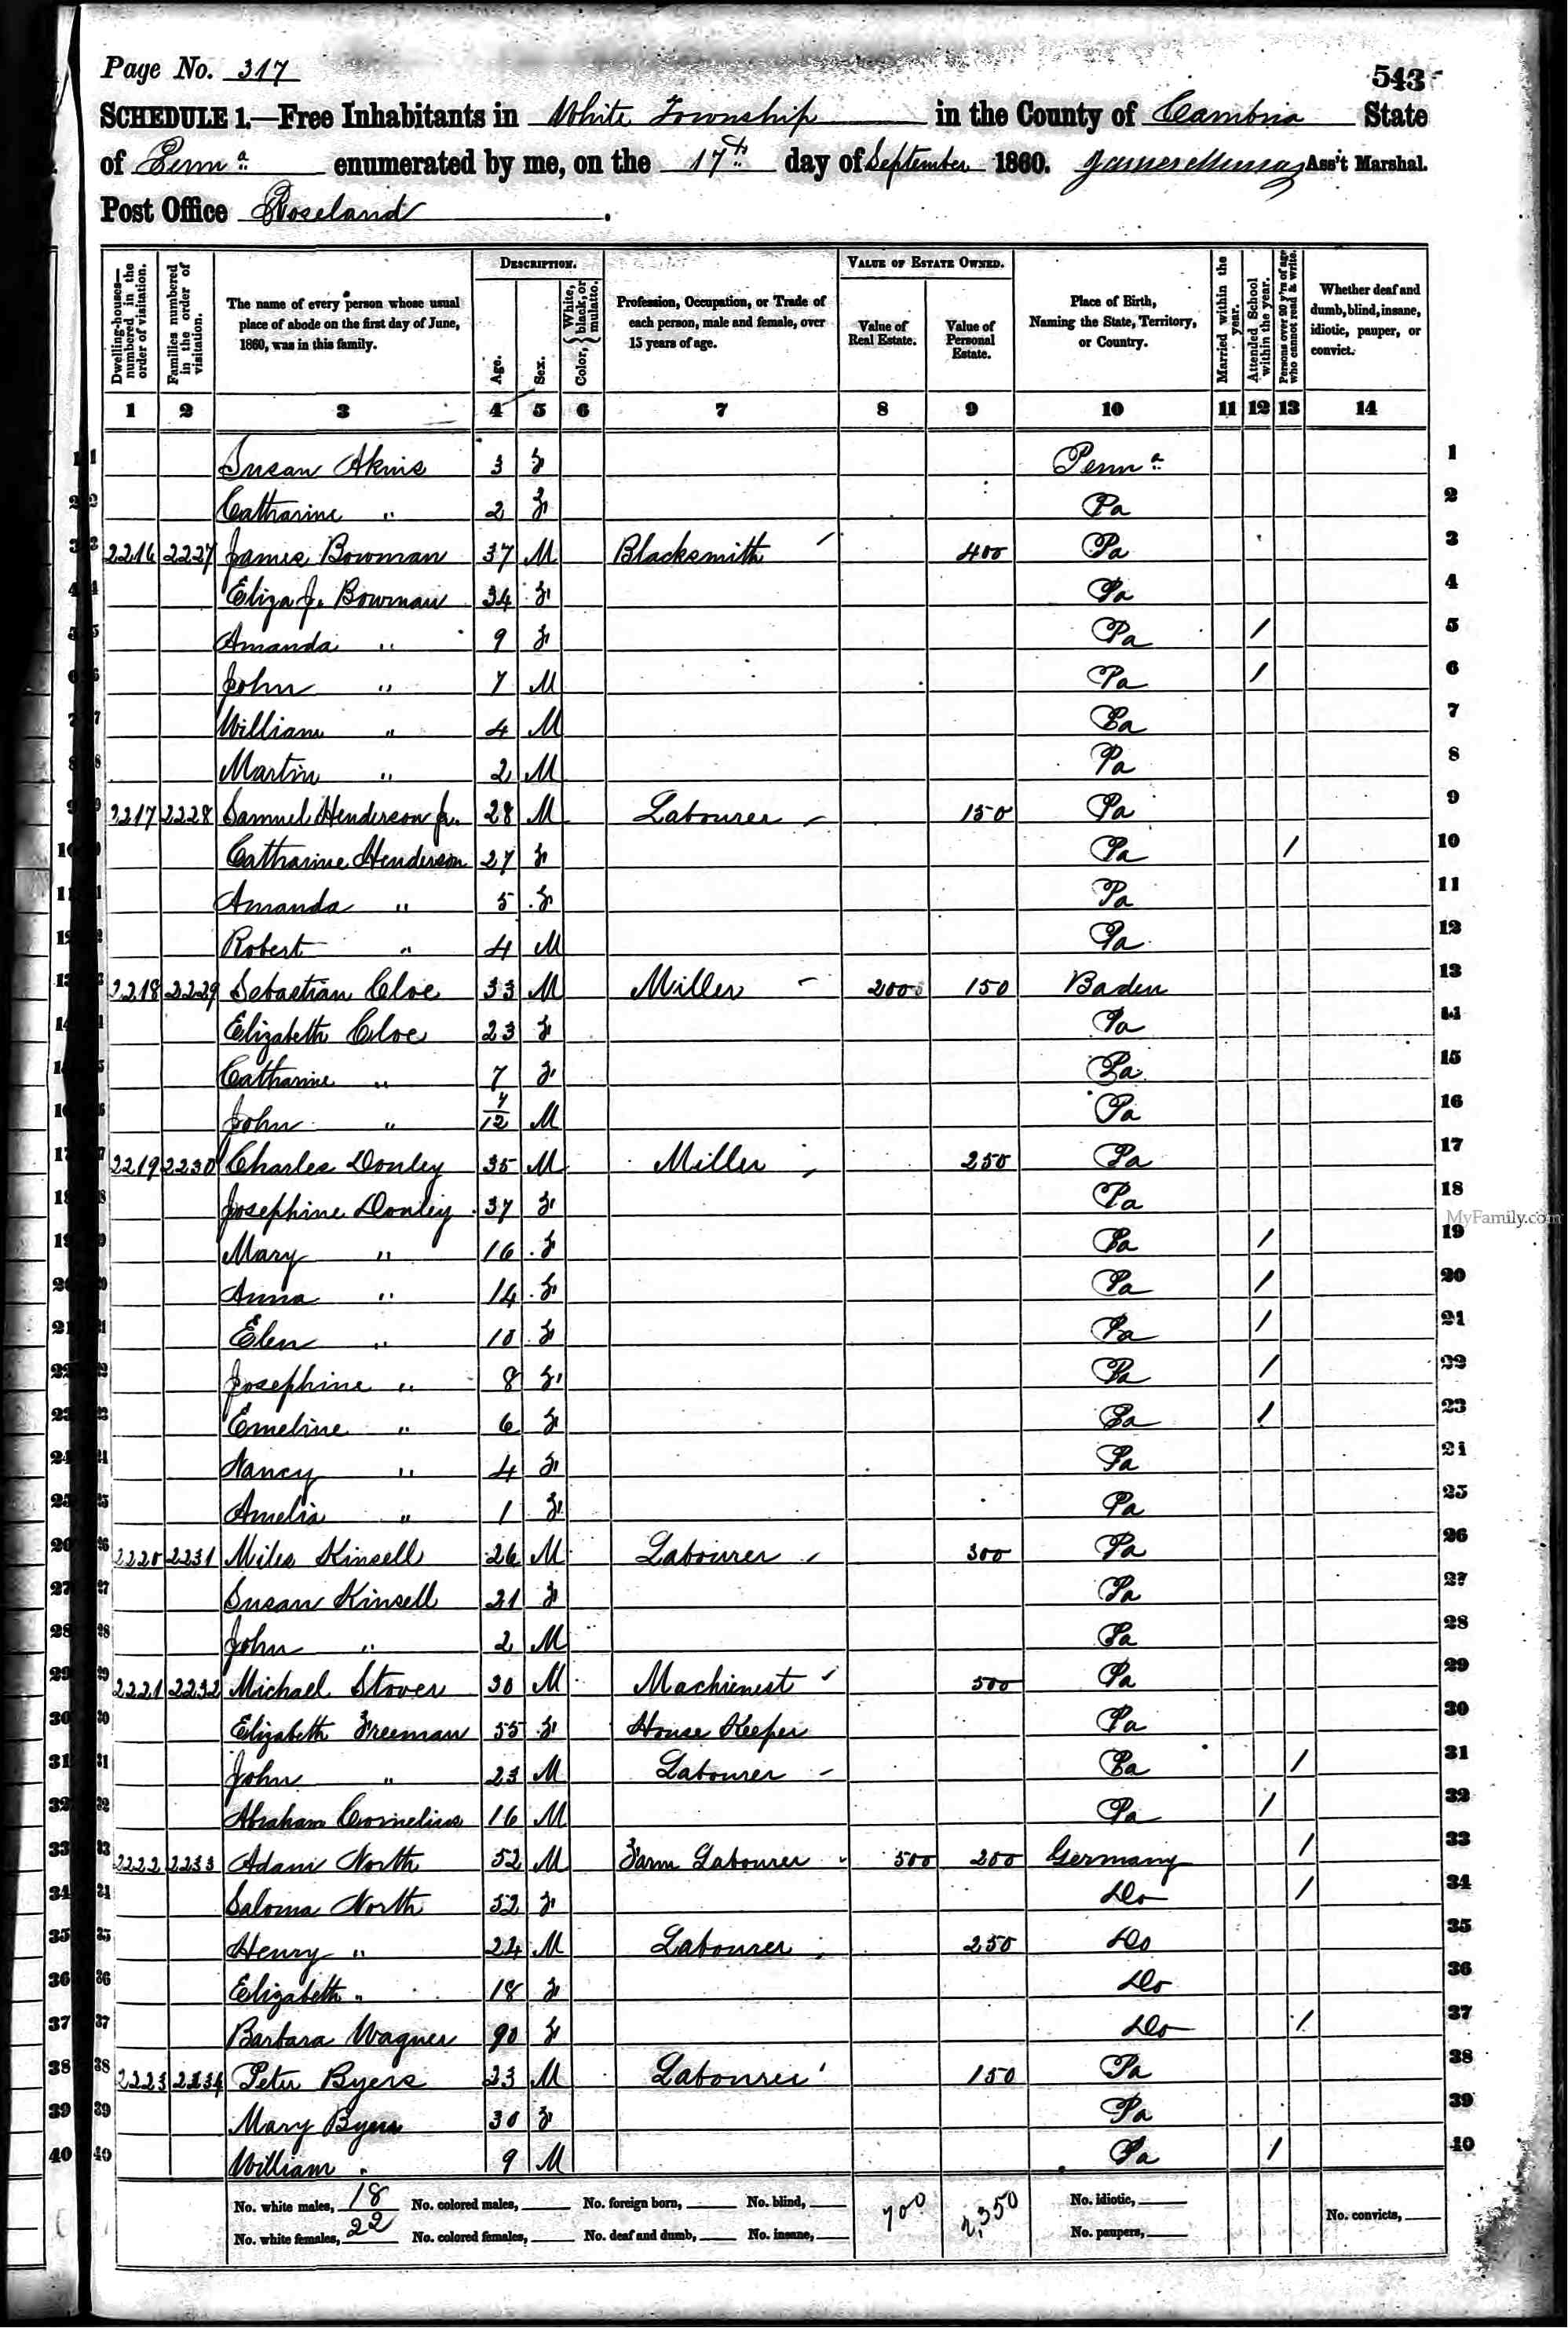 Page No. 317
543
SCHEDULE 1.—Free Inhabitants in White Township in the County of Cambria State
of Penna enumerated by me, on the 17th day of September 1860. James Ass't Marshal.
Post Office Roseland.
DESCRIPTION. VALUE OF ESTATE OWNED.
Dwelling-houses—numbered in the order of visitation.
Families numbered in the order of visitation.
The name of every person whose usual place of abode on the first day of June, 1860, was in this family.
Age.
Sex.
Color, { White, black, or mulatto.
Profession, Occupation, or Trade of each person, male and female, over 15 years of age.
Value of Real Estate.
Value of Personal Estate.
Place of Birth, Naming the State, Territory, or Country.
Married within the year.
Attended School within the year.
Persons over 20 y'rs of age who cannot read & write.
Whether deaf and dumb, blind, insane, idiotic, pauper, or convict.
1 2 3 4 5 6 7 8 9 10 11 12 13 14
1 Susan Akins 3 F Penna 1
2 Catharine " 2 F Pa 2
3 2216 2227 James Bowman 37 M Blacksmith 400 Pa 3
4 Eliza J. Bowman 34 F Pa 4
5 Amanda " 9 F Pa / 5
6 John " 7 M Pa / 6
7 William " 4 M Pa 7
8 Martin " 2 M Pa 8
9 2217 2228 Samuel Henderson Jr. 28 M Labourer 150 Pa 9
10 Catharine Henderson 27 F Pa / 10
11 Amanda " 5 F Pa 11
12 Robert " 4 M Pa 12
13 2218 2229 Sebastian Cloe 33 M Miller 2000 150 Baden 13
14 Elizabeth Cloe 23 F Pa 14
15 Catharine " 7 F Pa 15
16 John " 4/12 M Pa 16
17 2219 2230 Charles Donley 35 M Miller 250 Pa 17
18 Josephine Donley 37 F Pa 18
MyFamily.com
19 Mary " 16 F Pa / 19
20 Anna " 14 F Pa / 20
21 Elen " 10 F Pa / 21
22 Josephine " 8 F Pa / 22
23 Emeline " 6 F Pa / 23
24 Nancy " 4 F Pa 24
25 Amelia " 1 F Pa 25
26 2220 2231 Miles Kinsell 26 M Labourer 300 Pa 26
27 Susan Kinsell 21 F Pa 27
28 John " 2 M Pa 28
29 2221 2232 Michael Stover 30 M Machienest 500 Pa 29
30 Elizabeth Freeman 55 F House Keeper Pa 30
31 John " 23 M Labourer Pa / 31
32 Abraham Cornelius 16 M Pa / 32
33 2222 2233 Adam North 52 M Farm Labourer 500 200 Germany / 33
34 Saloma North 52 F Do / 34
35 Henry " 24 M Labourer 250 Do 35
36 Elizabeth " 18 F Do 36
37 Barbara Wagner 90 F Do / 37
38 2223 2234 Peter Byers 23 M Labourer 150 Pa 38
39 Mary Byers 30 F Pa 39
40 William " 9 M Pa / 40
No. white males, 18 No. colored males, No. foreign born, No. blind, 700 2,350 No. idiotic, No. convicts,
No. white females, 22 No. colored females, No. deaf and dumb, No. insane, No. paupers,